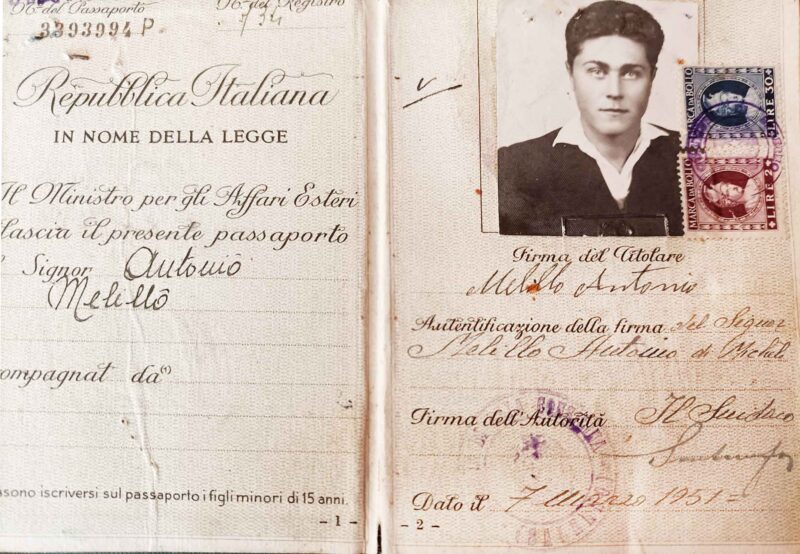 No. del Passaporto No. del Registro
3393994 P 734
Repubblica Italiana
IN NOME DELLA LEGGE
Il Ministro per gli Affari Esteri
lascia il presente passaporto
l Signor Antonio
Melillo
ompagnat da (1)
ssono iscriversi sul passaporto i figli minori di 15 anni.
- 1 -
MARCA DA BOLLO
LIRE 30
MARCA DA BOLLO
LIRE 2
Firma del Titolare
Melillo Antonio
Autentificazione della firma del Signor
Melillo Antonio di Michele
Firma dell'Autorità Il Sindaco
Dato il 7 marzo 1951 =
- 2 -